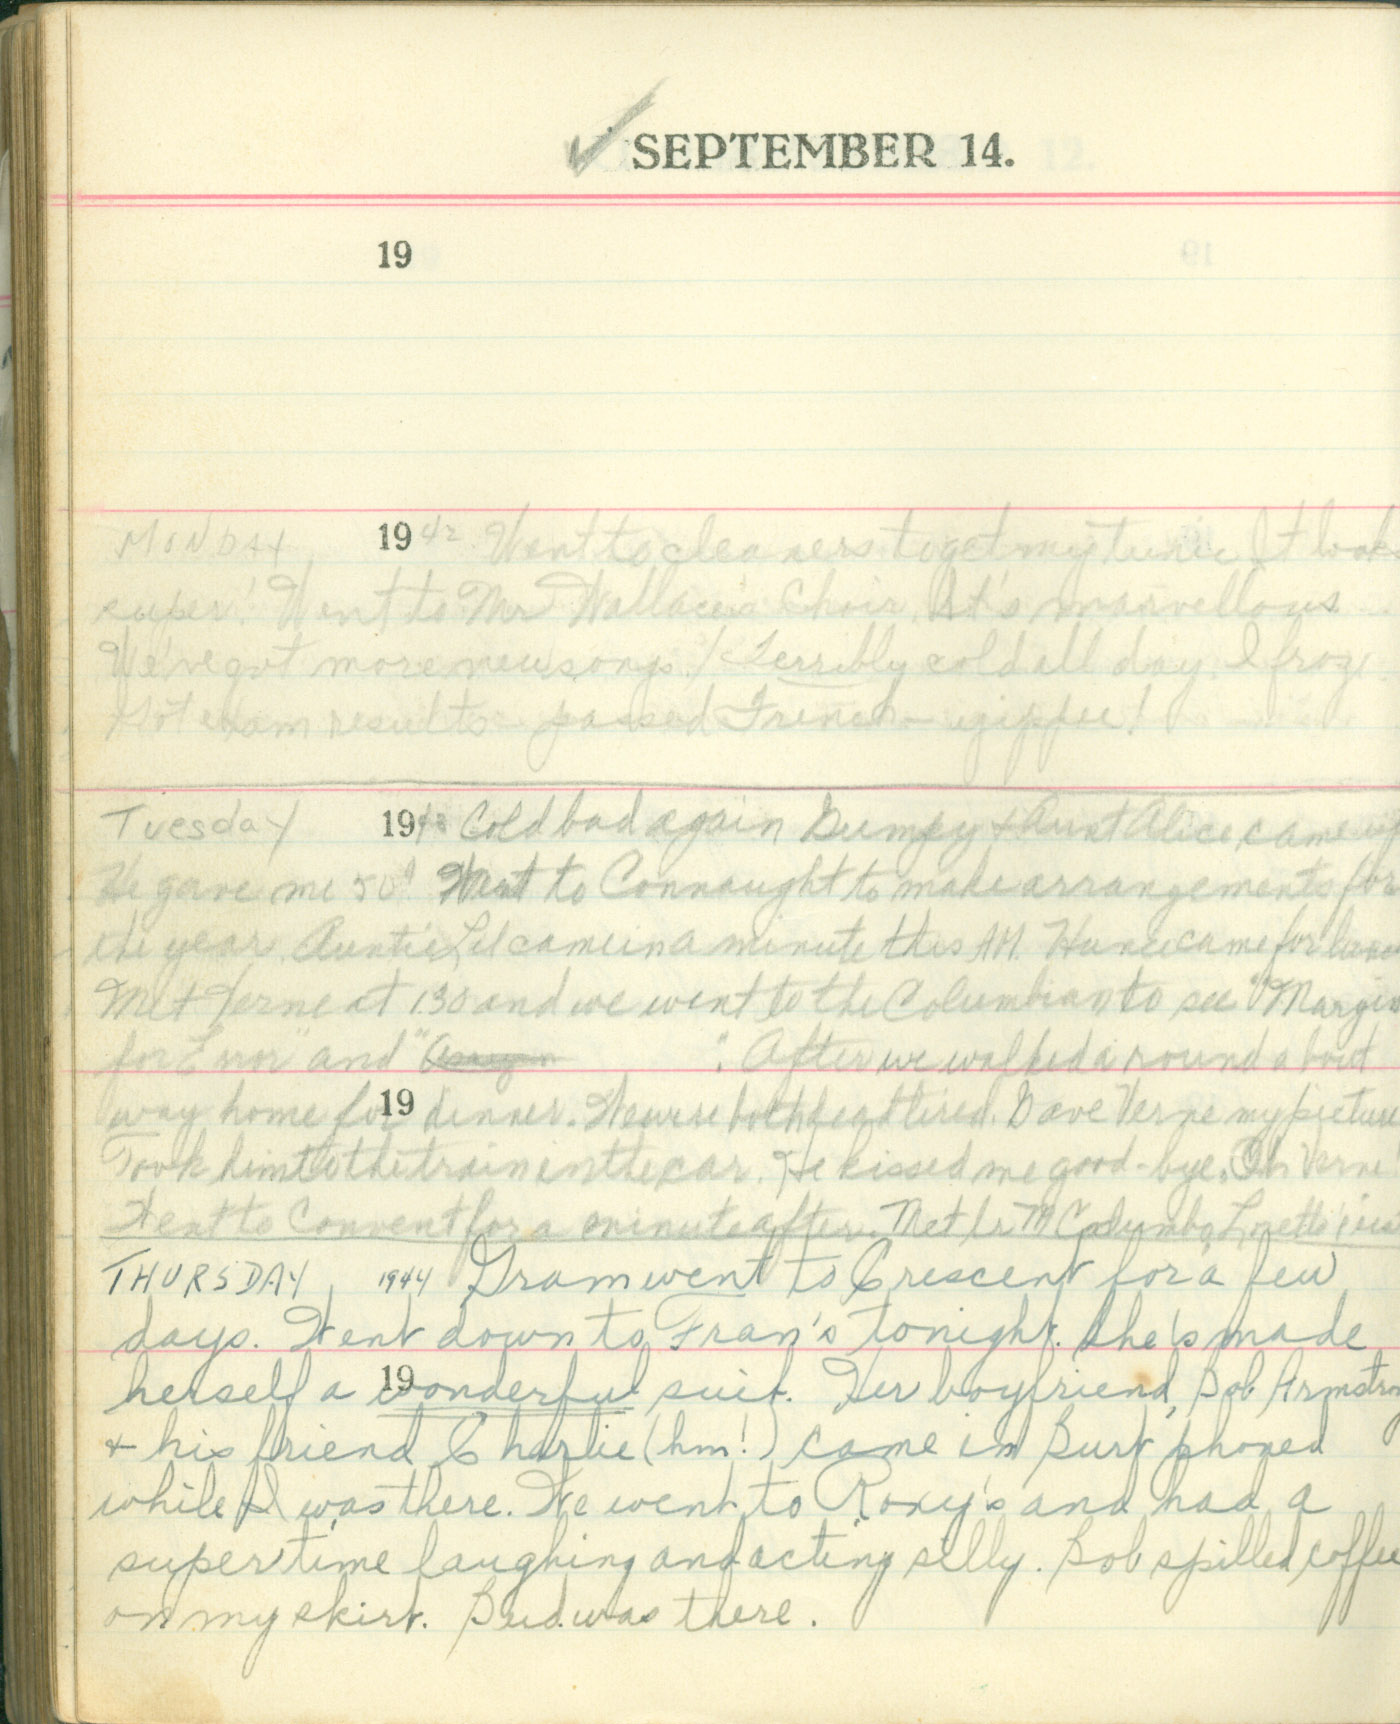 ✓ SEPTEMBER 14.
19
MONDAY 1942 Went to cleaners to get my tunic It look
super! Went to Mr Wallace's Choir. It's marvellous
We've got more new songs! Terribly cold all day. I froze
Got exam results - passed French - yippee!
Tuesday 1943 Cold bad again Gumpy + Aunt Alice came up
He gave me 50¢! Went to Connaught to make arrangements for
the year. Auntie Lil came in a minute this AM. came for lunch
Met Verne at 1.30 and we went to the Columbian to see "Margin
for Error" and " ". After we walked around about
way home for dinner. We were both dead tired. Gave Verne my picture
Took him to the train in the car. He kissed me good-bye. Oh Verne!
Went to Convent for a minute after. Met
THURSDAY 1944 Gram went to Crescent for a few
days. Went down to Fran's tonight. She's made
19
herself a wonderful suit. Her boyfriend, Bob Armstron
+ his friend Charlie (hm!) came in Burt phoned
while I was there. We went to Roxy's and had a
super time laughing and acting silly. Bob spilled coffee
on my skirt. Bud was there.